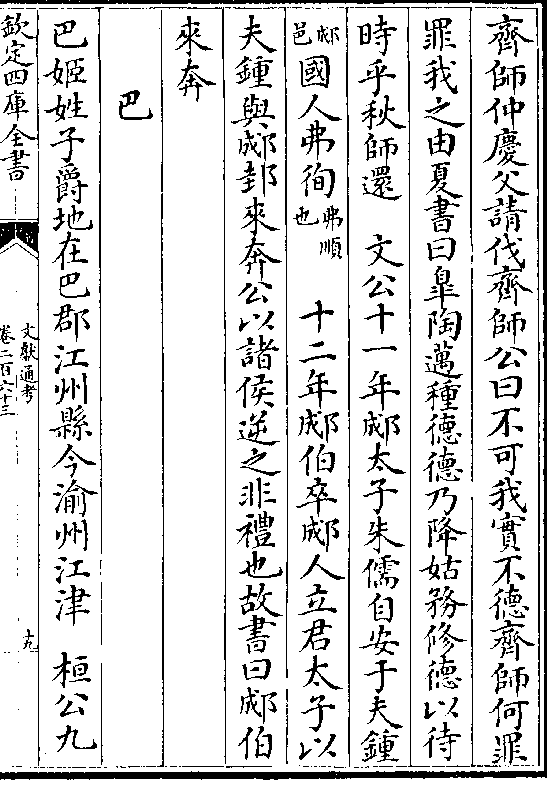 齊師仲慶父請伐齊師公曰不可我實不德齊師何罪
罪我之由夏書曰臯陶邁種德德乃降姑務修德以待
時乎秋師還　文公十一年郕太子朱儒自安于夫鍾
郕邑國人弗徇弗順也　十二年郕伯卒郕人立君太子以
夫鍾與郕邽來奔公以諸侯逆之非禮也故書曰郕伯
來奔
巴
巴姬姓子爵地在巴郡江州縣今渝州江津　桓公九
欽定四庫全書
文獻通考
卷二百六十三
十九